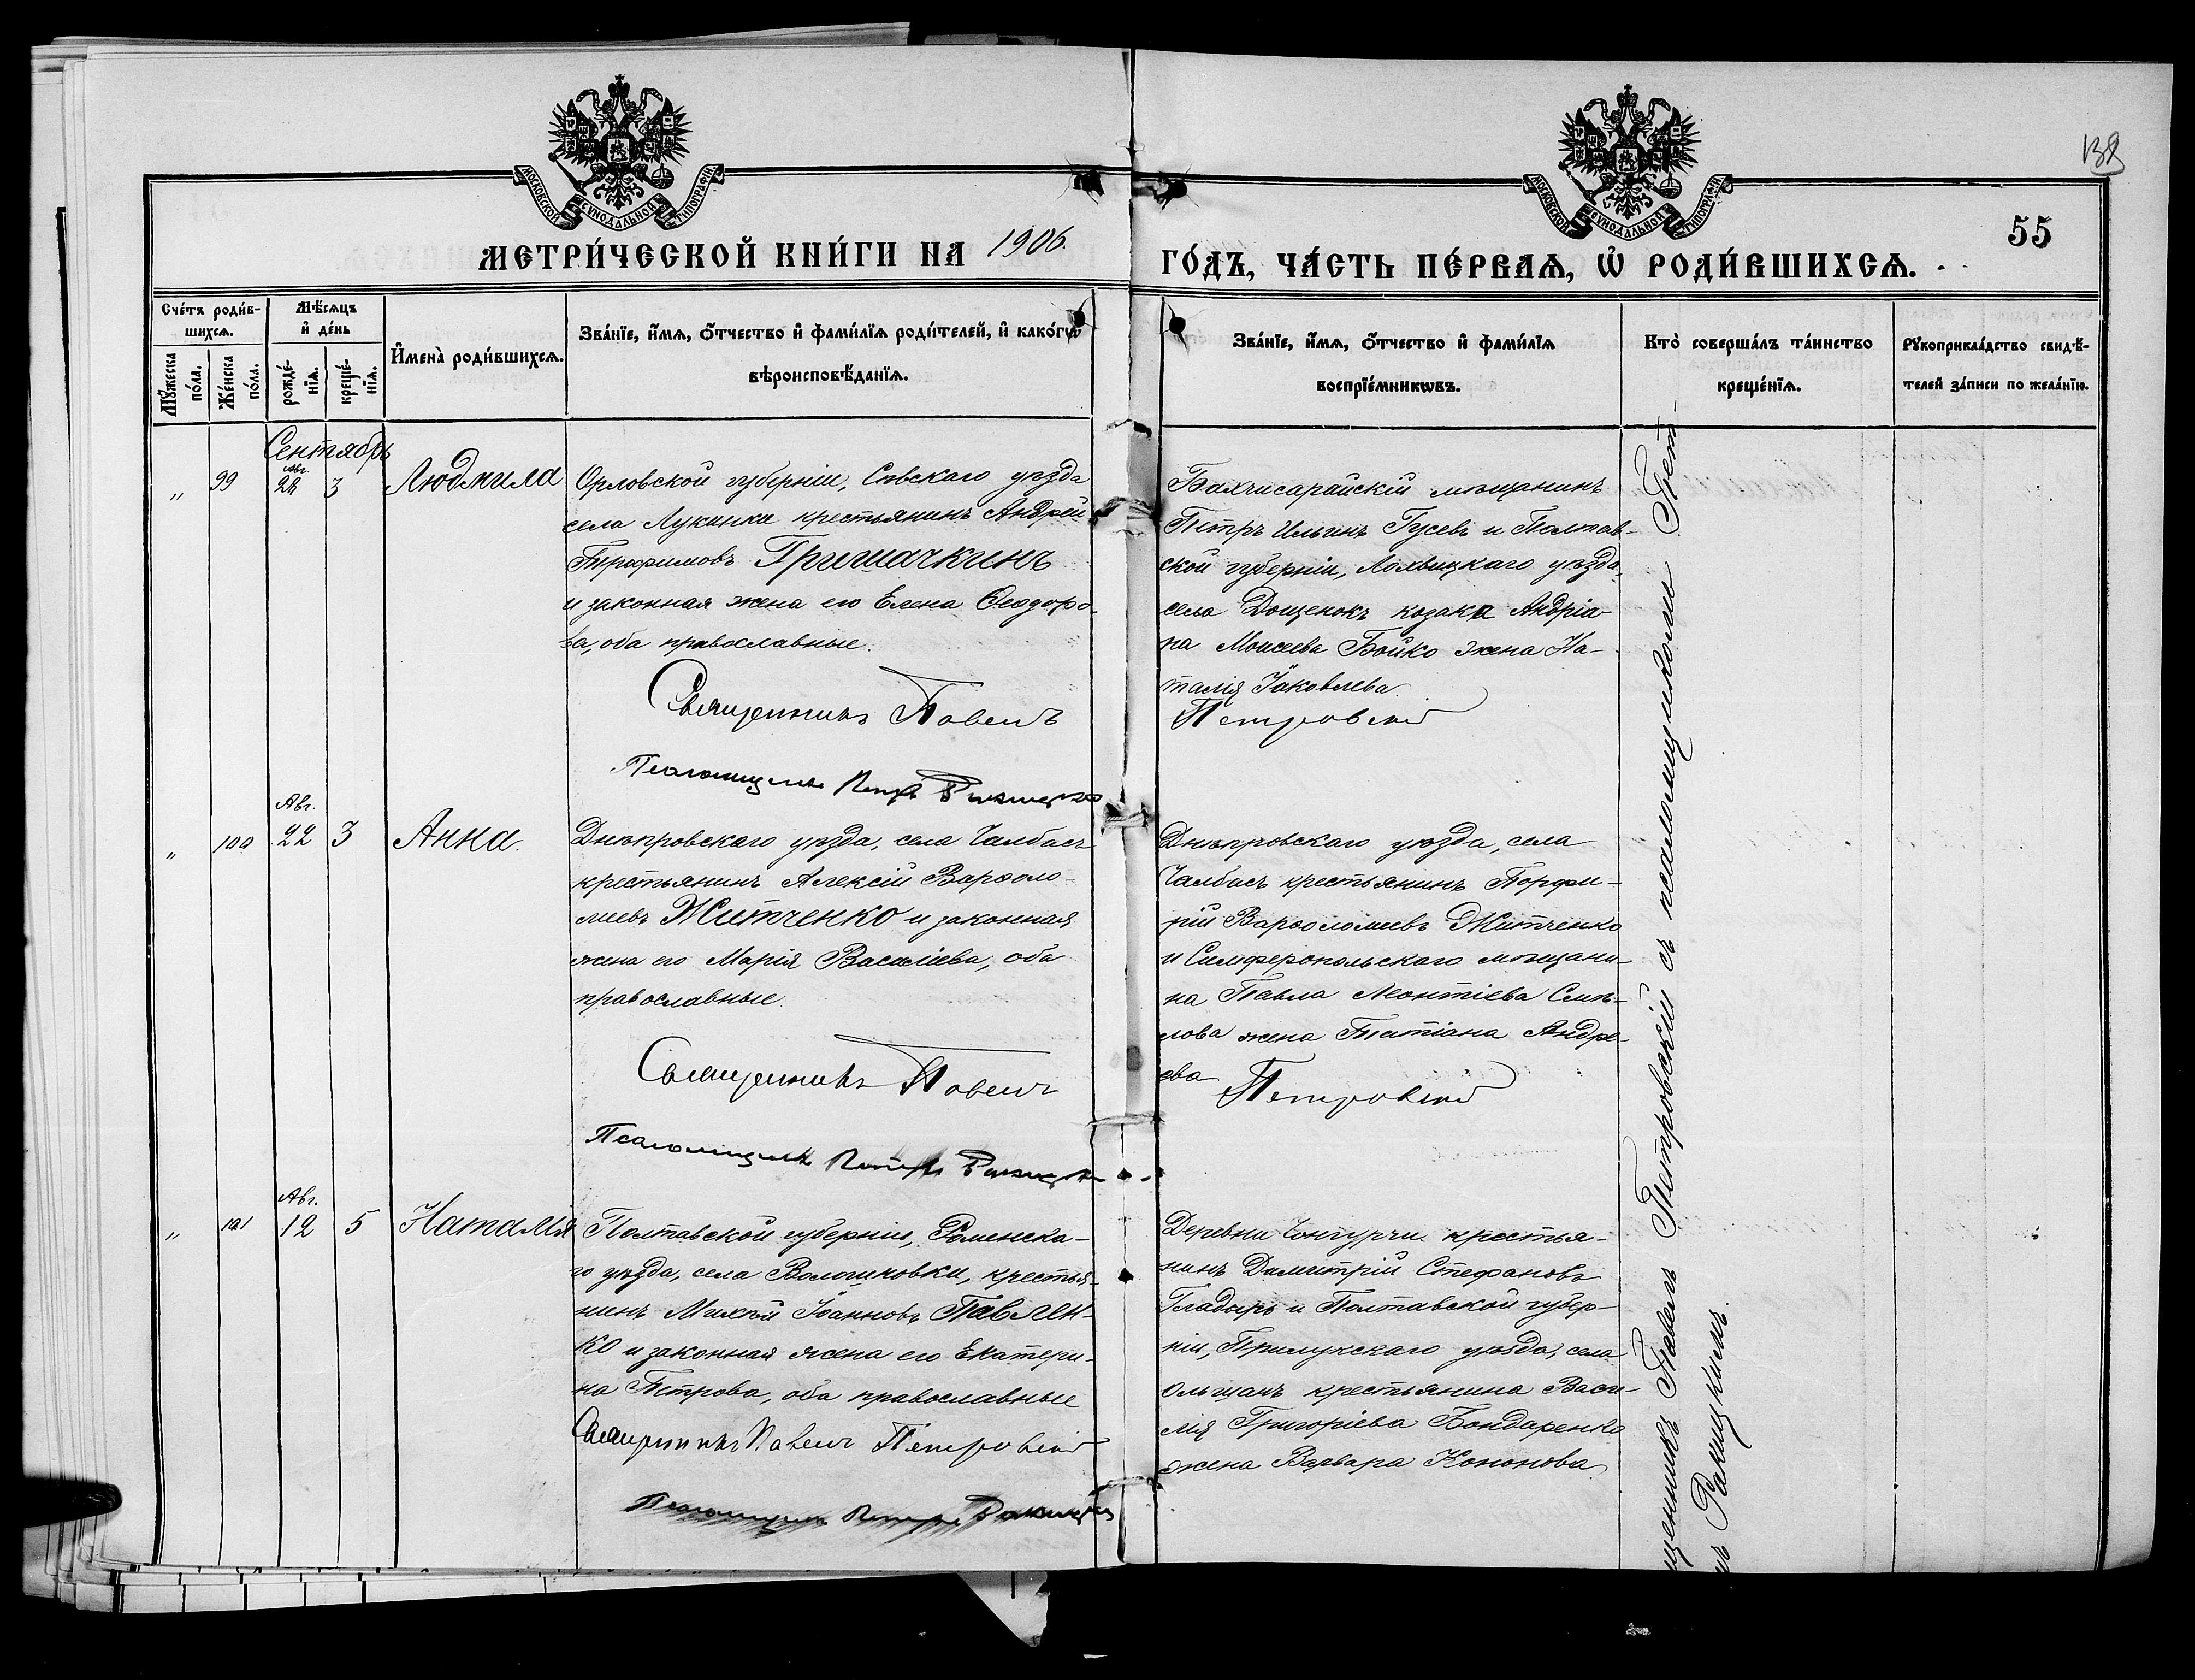 МОСКОВСКОЙ СѴНОДАЛЬНОЙ ТИПОГРАФІИ
МОСКОВСКОЙ СѴНОДАЛЬНОЙ ТИПОГРАФІИ
138
55
МЕТРИ́ЧЕСКОЙ КНИ́ГИ НА 1906.
ГО́ДЪ, ЧА́СТЬ ПЕ́РВАѦ, Ѡ҆ РОДИ́ВШИХСѦ.
Сче́тъ роди́в-
шихсѧ.
Мꙋ́жеска
по́ла.
Же́нска
по́ла.
Мѣ́сѧцъ
и҆ де́нь
рожде́-
нїѧ.
креще́-
нїѧ.
И҆мена̀ роди́вшихсѧ.
Зва́нїе, и҆́мѧ, ѻ҆́тчество и҆ фами́лїѧ роди́телей, и҆ како́гѡ
вѣроисповѣ́данїѧ.
Зва́нїе, и҆́мѧ, ѻ҆́тчество и҆ фами́лїѧ
воспрїе́мникѡвъ.
Кто̀ соверша́лъ та́инство
креще́нїѧ.
Рꙋкоприкла́дство свидѣ́-
телей за́писи по жела́нїю.
Сентябрь
Авг.
„ 99 28 3 Людмила
Орловской губерніи, Сѣвскаго уѣзда
села Луканки крестьянинъ Андрей
Трофимовъ Гришачкинъ
и законная жена его Елена Ѳеодоро-
ва, оба православные.
Священникъ Павелъ
Петровскій
Псаломщикъ Петръ Ракицкій
Бахчисарайскій мѣщанинъ
Петръ Ильинъ Гусевъ и Полтав-
ской губерніи, Лохвицкаго уѣзда,
села Дощенокъ козака Андріа-
на Моисеева Бойко жена На-
талія Іаковлева.
Авг.
„ 100 22 3 Анна.
Днѣпровскаго уѣзда, села Чалбасъ
крестьянинъ Алексій Варѳоло-
меевъ Житченко и законная
жена его Марія Василіева, оба
православные.
Священникъ Павелъ
Петровскій
Псаломщикъ Петръ Ракицкій
Днѣпровскаго уѣзда, села
Чалбасъ крестьянинъ Порфи-
рій Варѳоломеевъ Житченко
и Симферопольскаго мѣщани-
на Павла Леонтіева Смѣ-
лова жена Татіана Андре-
ева
Авг.
„ 101 12 5 Наталія
Полтавской губерніи, Роменска-
го уѣзда, села Волошковки, крестья-
нинъ Михей Іоанновъ Павлен-
ко и законная жена его Екатери-
на Петрова, оба православные
Священникъ Павелъ Петровскій
Псаломщикъ Петръ Ракицкій
Деревни Чонгурчи крестья-
нинъ Димитрій Стефановъ
Гладырь и Полтавской губер-
ніи, Прилукскаго уѣзда, села
Ольшанъ крестьянина Васи-
лія Григоріева Бондаренко
жена Варвара Кононова
щенникъ Павелъ Петровскій съ псаломщикомъ Пет-
мъ Ракицкимъ.